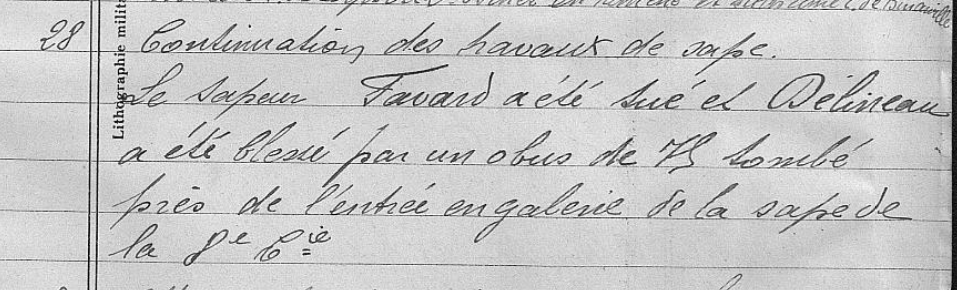 de Binarville
28 Continuation des travaux de sape.
Le sapeur Favard a été tué et Délineau
a été blessé par un obus de 75 tombé
près de l'entrée en galerie de la sape de
la 8e Cie
Lithographie milit